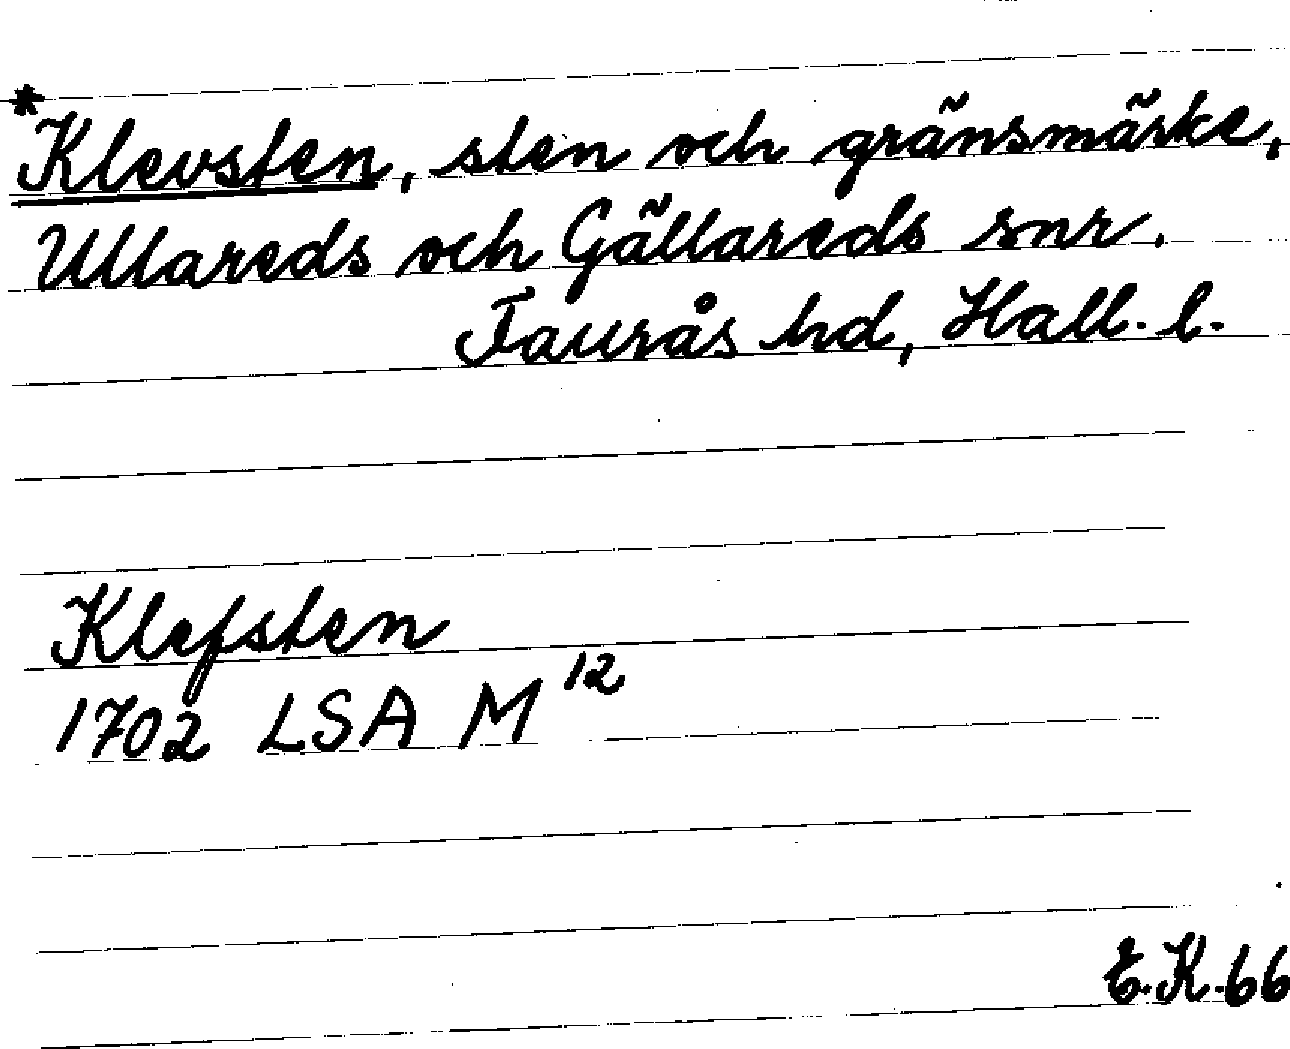 *Klevsten, sten och gränsmärke,
Ullareds och Gällareds snr.
Faurås hd, Hall. l.
Klefsten
1702 LSA M 12
E.K. 66